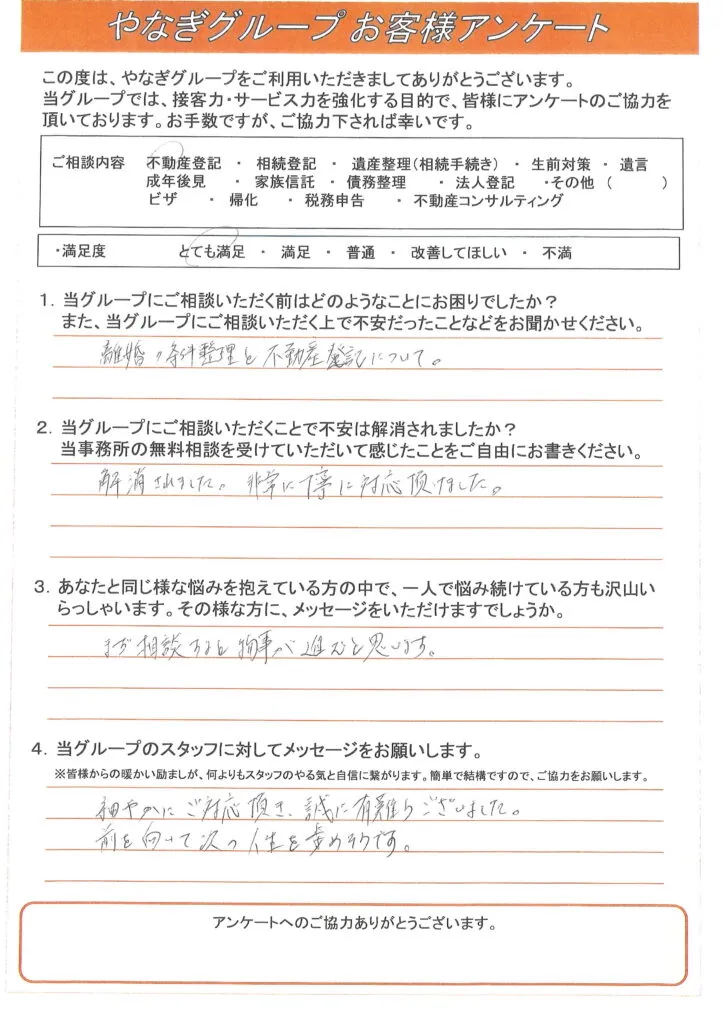 やなぎグループ お客様アンケート
この度は、やなぎグループをご利用いただきましてありがとうございます。
当グループでは、接客力・サービス力を強化する目的で、皆様にアンケートのご協力を
頂いております。お手数ですが、ご協力下されば幸いです。
ご相談内容 不動産登記 ・ 相続登記 ・ 遺産整理(相続手続き) ・ 生前対策 ・ 遺言
成年後見 ・ 家族信託 ・ 債務整理 ・ 法人登記 ・その他 ( )
ビザ ・ 帰化 ・ 税務申告 ・ 不動産コンサルティング
・満足度 とても満足 ・ 満足 ・ 普通 ・ 改善してほしい ・ 不満
1. 当グループにご相談いただく前はどのようなことにお困りでしたか?
また、当グループにご相談いただく上で不安だったことなどをお聞かせください。
離婚の条件整理と不動産登記について。
2. 当グループにご相談いただくことで不安は解消されましたか?
当事務所の無料相談を受けていただいて感じたことをご自由にお書きください。
解消されました。非常に丁寧に対応頂けました。
3. あなたと同じ様な悩みを抱えている方の中で、一人で悩み続けている方も沢山い
らっしゃいます。その様な方に、メッセージをいただけますでしょうか。
まず相談すると物事が進むと思います。
4. 当グループのスタッフに対してメッセージをお願いします。
※皆様からの暖かい励ましが、何よりもスタッフのやる気と自信に繋がります。簡単で結構ですので、ご協力をお願いします。
細やかにご対応頂き、誠に有難うございました。
前を向いて次の人生を歩めそうです。
アンケートへのご協力ありがとうございます。